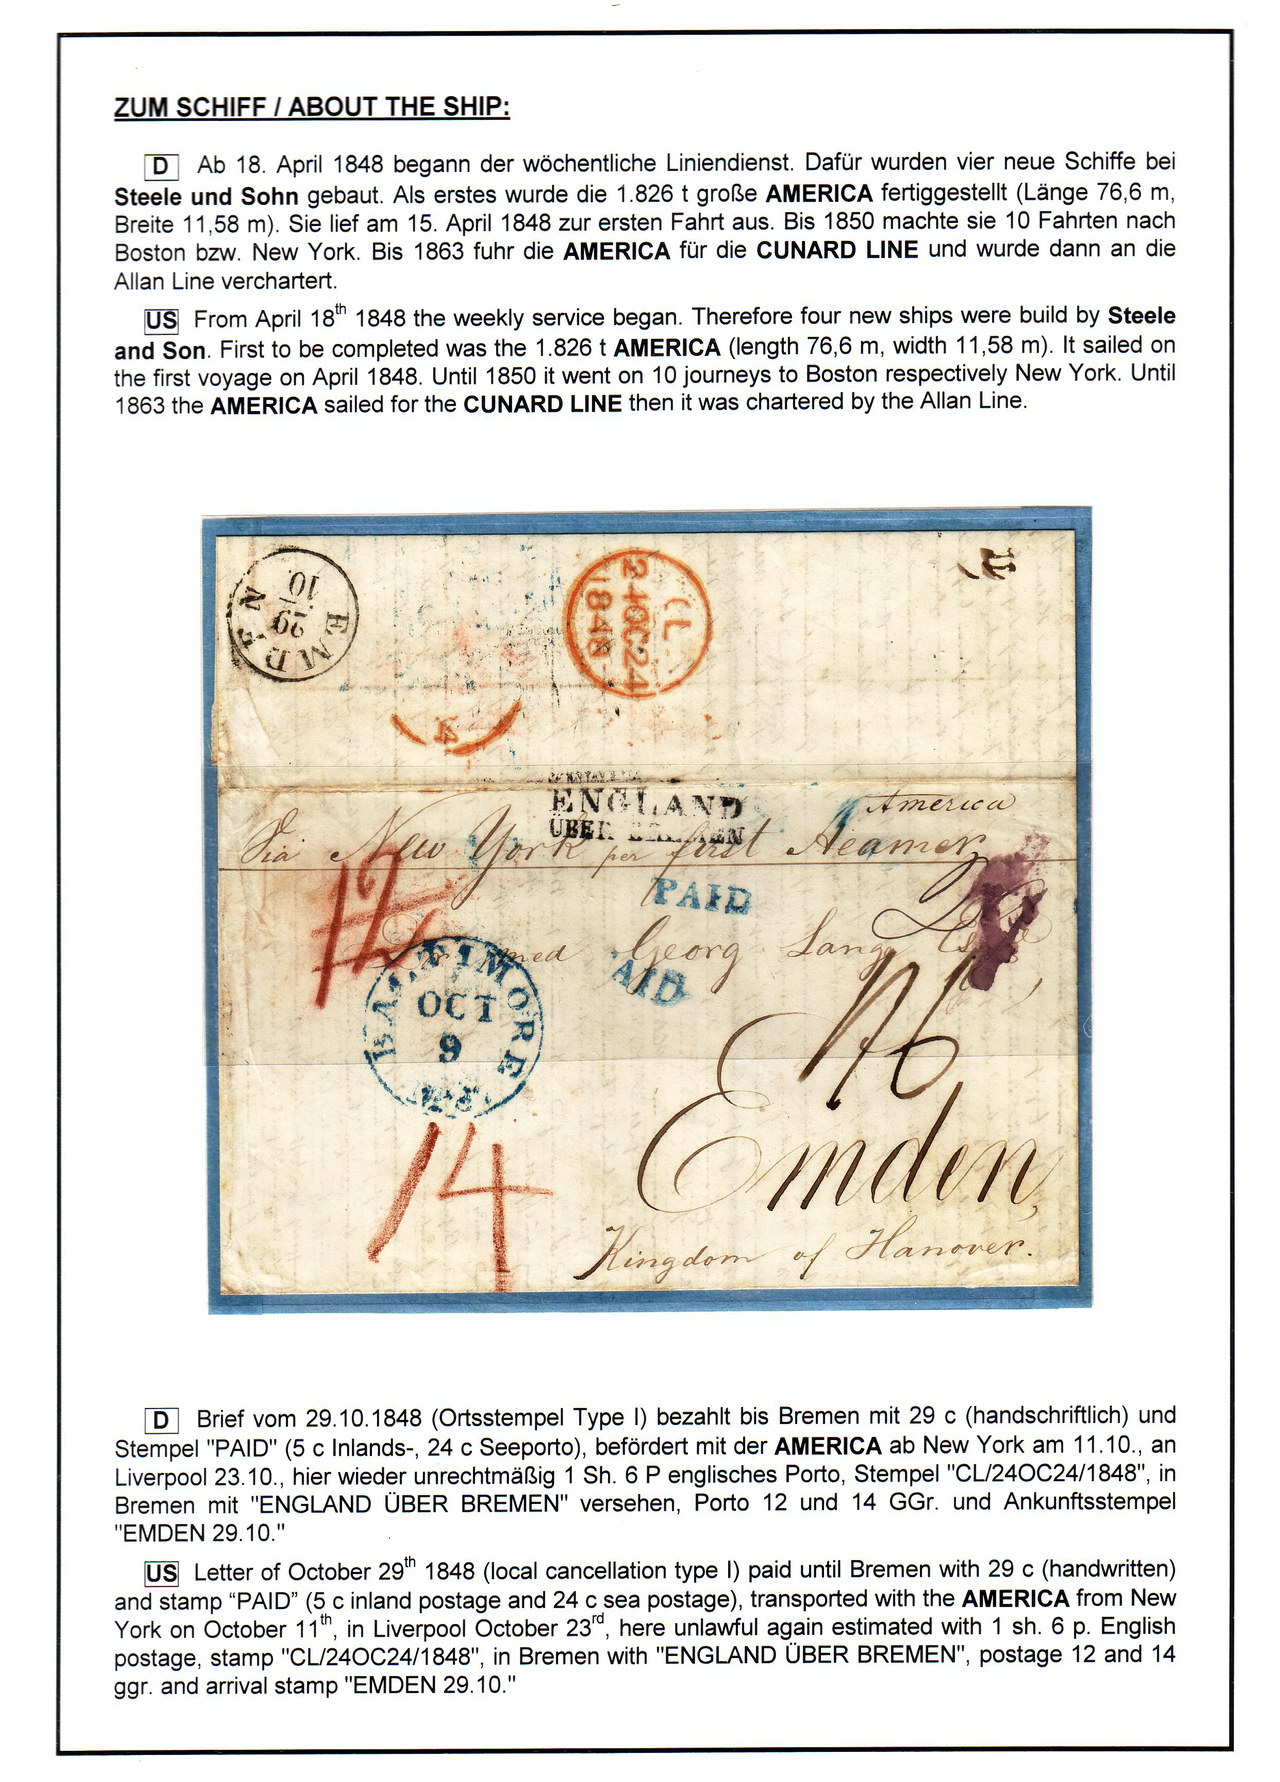 ZUM SCHIFF / ABOUT THE SHIP:
D Ab 18. April 1848 begann der wöchentliche Liniendienst. Dafür wurden vier neue Schiffe bei
Steele und Sohn gebaut. Als erstes wurde die 1.826 t große AMERICA fertiggestellt (Länge 76,6 m,
Breite 11,58 m). Sie lief am 15. April 1848 zur ersten Fahrt aus. Bis 1850 machte sie 10 Fahrten nach
Boston bzw. New York. Bis 1863 fuhr die AMERICA für die CUNARD LINE und wurde dann an die
Allan Line verchartert.
US From April 18th 1848 the weekly service began. Therefore four new ships were build by Steele
and Son. First to be completed was the 1.826 t AMERICA (length 76,6 m, width 11,58 m). It sailed on
the first voyage on April 1848. Until 1850 it went on 10 journeys to Boston respectively New York. Until
1863 the AMERICA sailed for the CUNARD LINE then it was chartered by the Allan Line.
EMDEN
29
10
CL
24OC24
1848
ENGLAND
ÜBER BREMEN
America
Via New York per first steamer
PAID
12
Georg Lange
AID
BALTIMORE
OCT
9
1/6
Emden,
14
Kingdom of Hanover.
D Brief vom 29.10.1848 (Ortsstempel Type I) bezahlt bis Bremen mit 29 c (handschriftlich) und
Stempel "PAID" (5 c Inlands-, 24 c Seeporto), befördert mit der AMERICA ab New York am 11.10., an
Liverpool 23.10., hier wieder unrechtmäßig 1 Sh. 6 P englisches Porto, Stempel "CL/24OC24/1848", in
Bremen mit "ENGLAND ÜBER BREMEN" versehen, Porto 12 und 14 GGr. und Ankunftsstempel
"EMDEN 29.10."
US Letter of October 29th 1848 (local cancellation type I) paid until Bremen with 29 c (handwritten)
and stamp “PAID” (5 c inland postage and 24 c sea postage), transported with the AMERICA from New
York on October 11th, in Liverpool October 23rd, here unlawful again estimated with 1 sh. 6 p. English
postage, stamp "CL/24OC24/1848", in Bremen with "ENGLAND ÜBER BREMEN", postage 12 and 14
ggr. and arrival stamp "EMDEN 29.10."